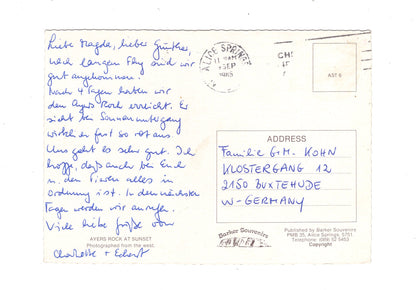 Liebe Magda, lieber Günther,
nach langem Flug sind wir
gut angekommen.
Nach 4 Tagen haben wir
den Ayers Rock erreicht. Er
sieht bei Sonnenuntergang
wirklich fast so rot aus.
Uns geht es sehr gut. Ich
hoffe, daß auch bei Euch
u. den Tieren alles in
Ordnung ist. In den nächsten
Tagen werden wir anrufen.
Viele liebe Grüße von
Charlotte + Eckart
AYERS ROCK AT SUNSET
Photographed from the west.
ALICE SPRINGS
SEP
1985
AST 6
ADDRESS
Familie G.+M. KOHN
KLOSTERGANG 12
2150 BUXTEHUDE
W-GERMANY
Barker Souvenirs
Published by Barker Souvenirs
PMB 35, Alice Springs, 5751.
Telephone: (089) 52 5453
Copyright